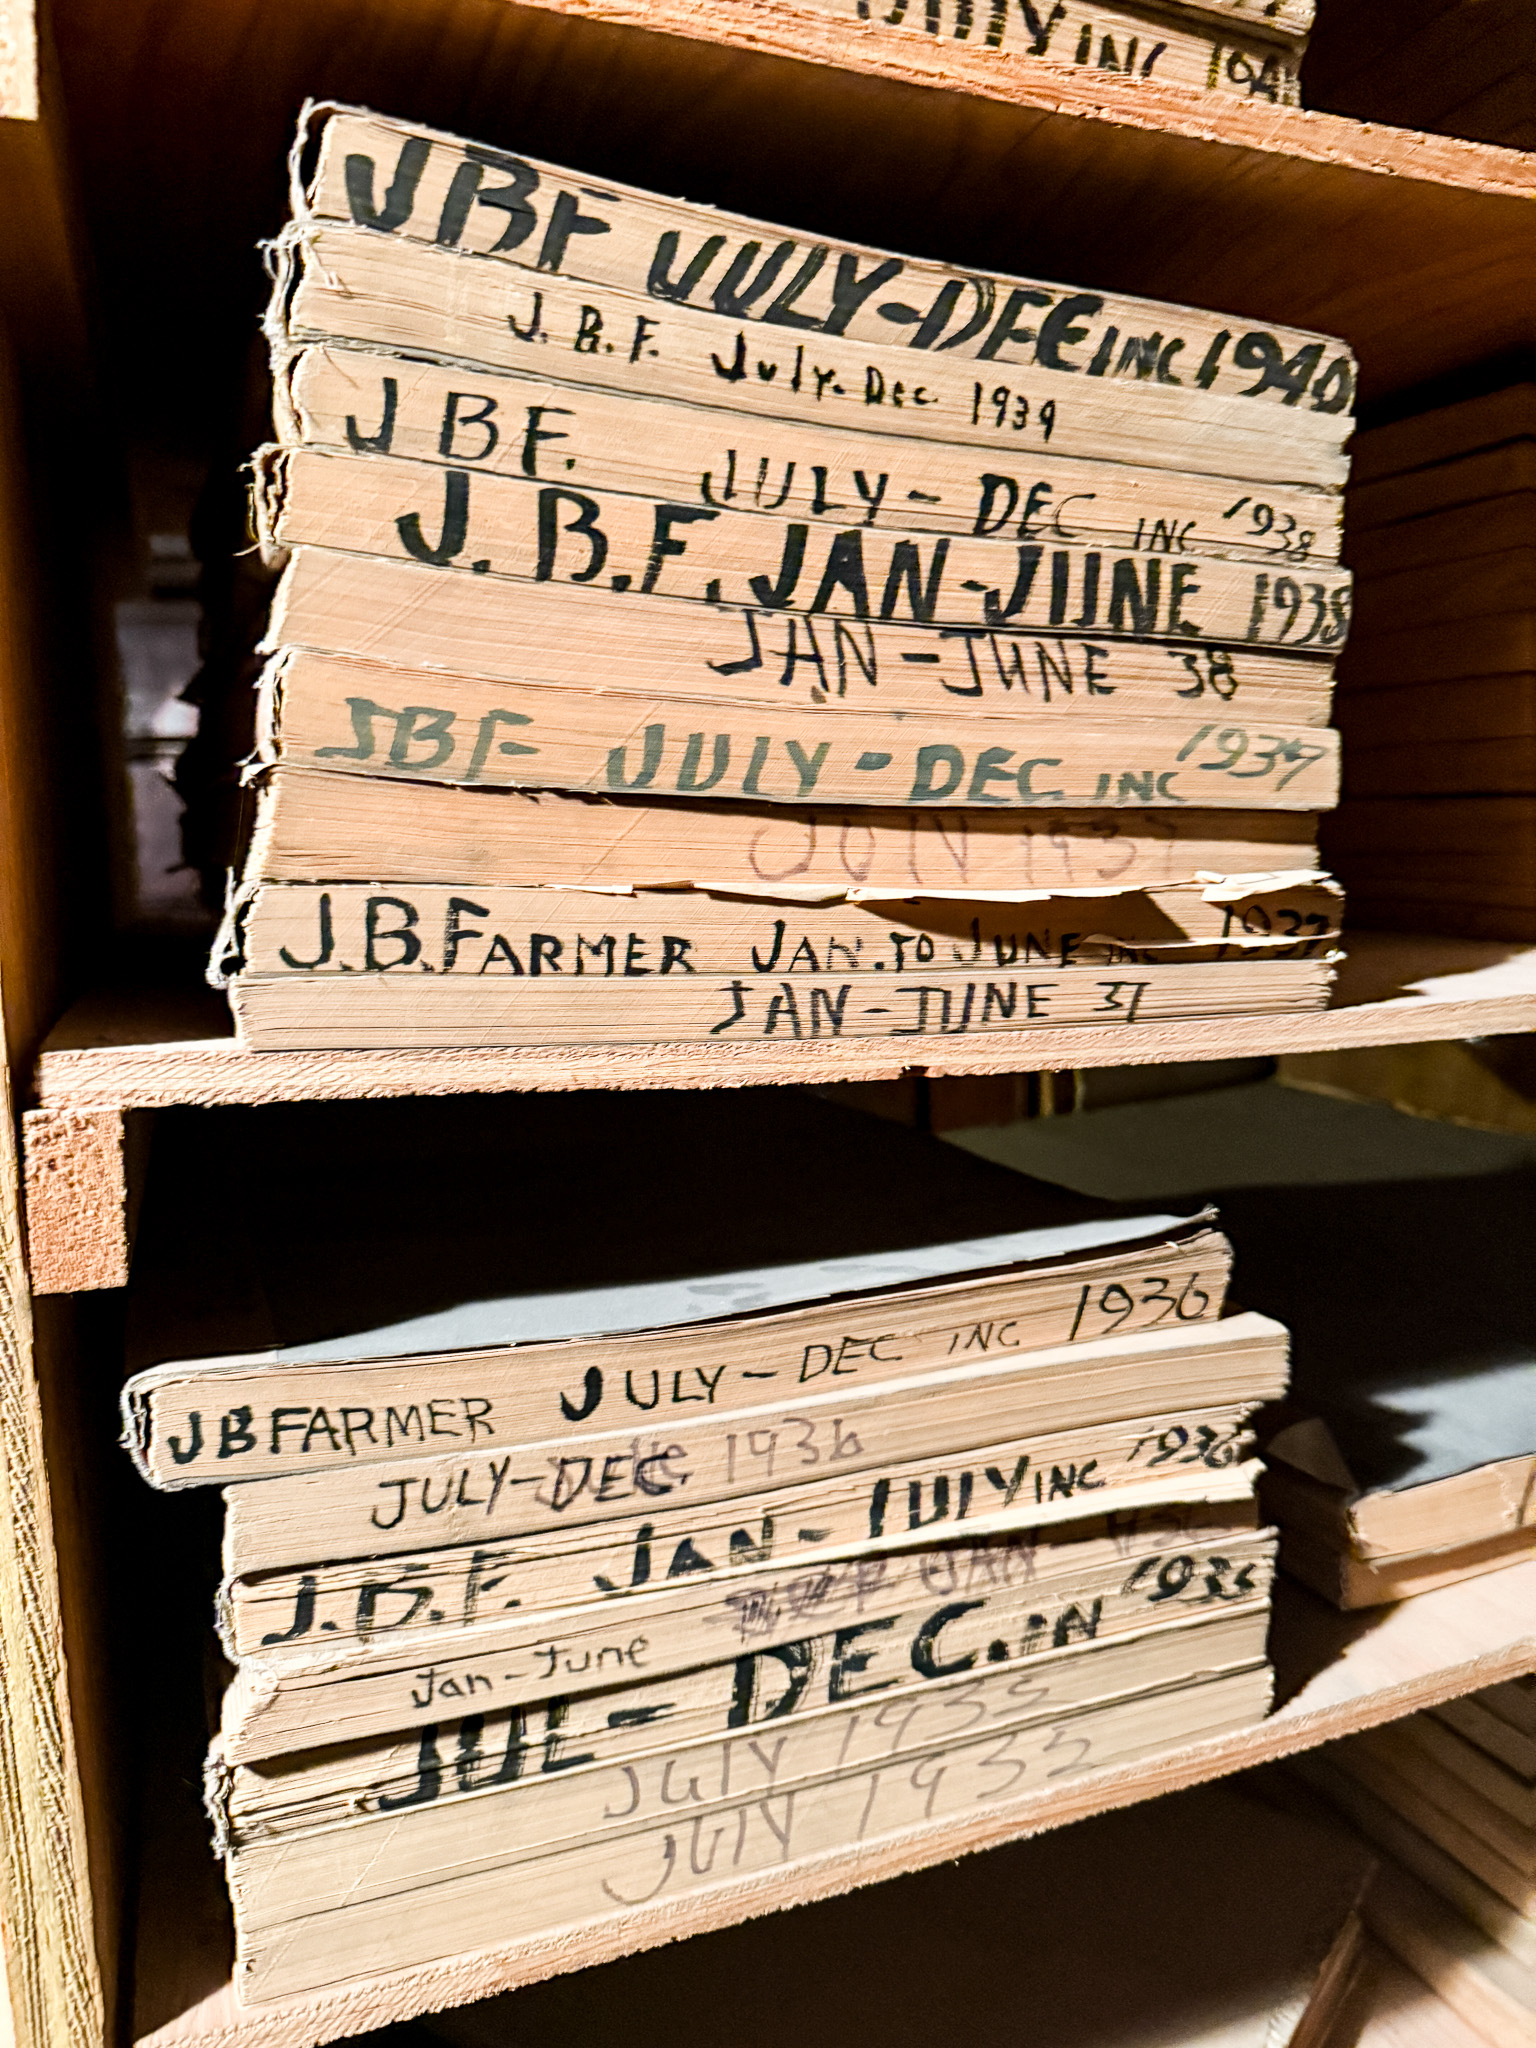 INC 194
JBF JULY-DEC INC 1940
J. B. F. July. Dec. 1939
JBF. JULY - DEC INC 1938
J. B. F. JAN-JUNE 1938
JAN - JUNE 38
JBF JULY - DEC INC 1937
1937
J.B.FARMER JAN. TO JUNE INC 1937
JAN - JUNE 37
JBFARMER JULY - DEC INC 1936
JULY-DEC. 1936
J.B.F. JAN - JULY INC 1936
Jan - June JAN
JUL - DEC. IN 1935
JULY 1935
JULY 1935